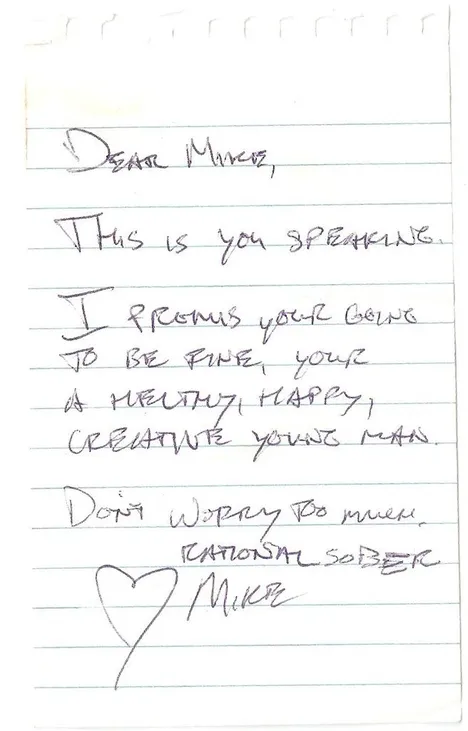 DEAR MIKE,
THIS IS YOU SPEAKING.
I PROMIS YOUR GOING
TO BE FINE, YOUR
A HELTHY, HAPPY,
CREATIVE YOUNG MAN.
DON'T WORRY TOO MUCH.
RATIONAL SOBER
MIKE